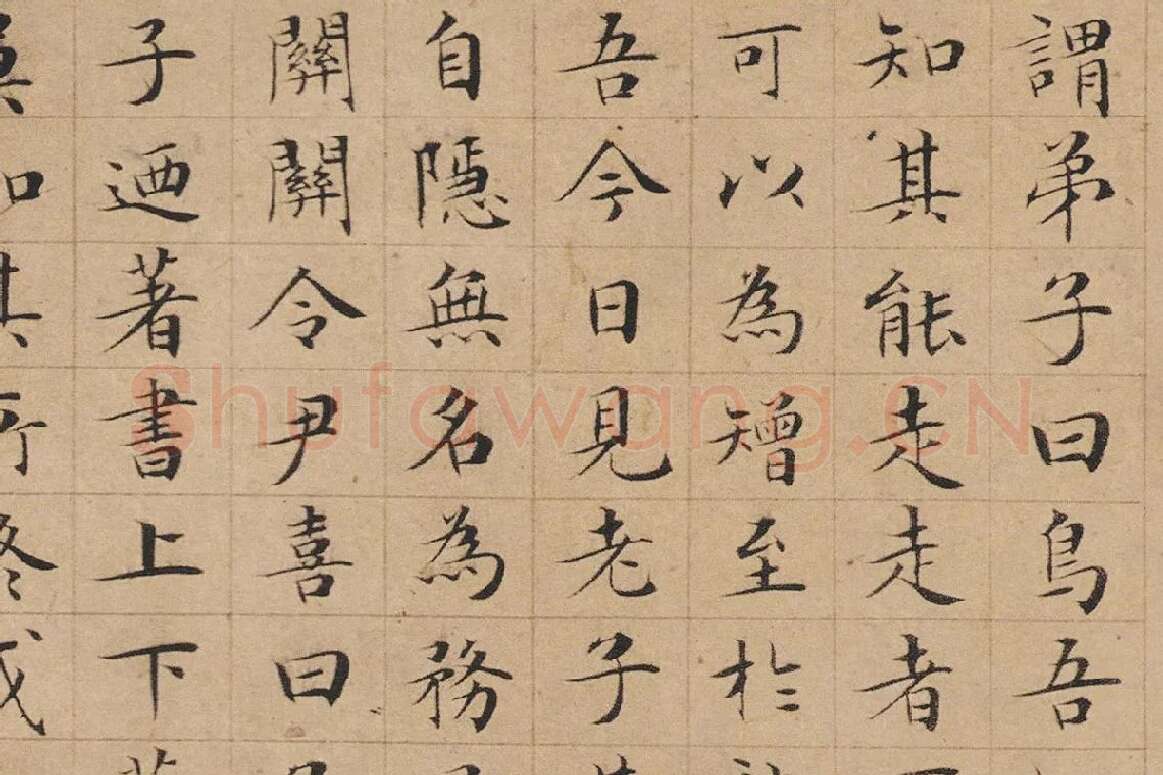 謂弟子曰鳥吾
知其能走走者
可以為矰至於
吾今日見老子
自隱無名為務
關關令尹喜曰
子迺著書上下
莫知其所終或
Shufawang.CN